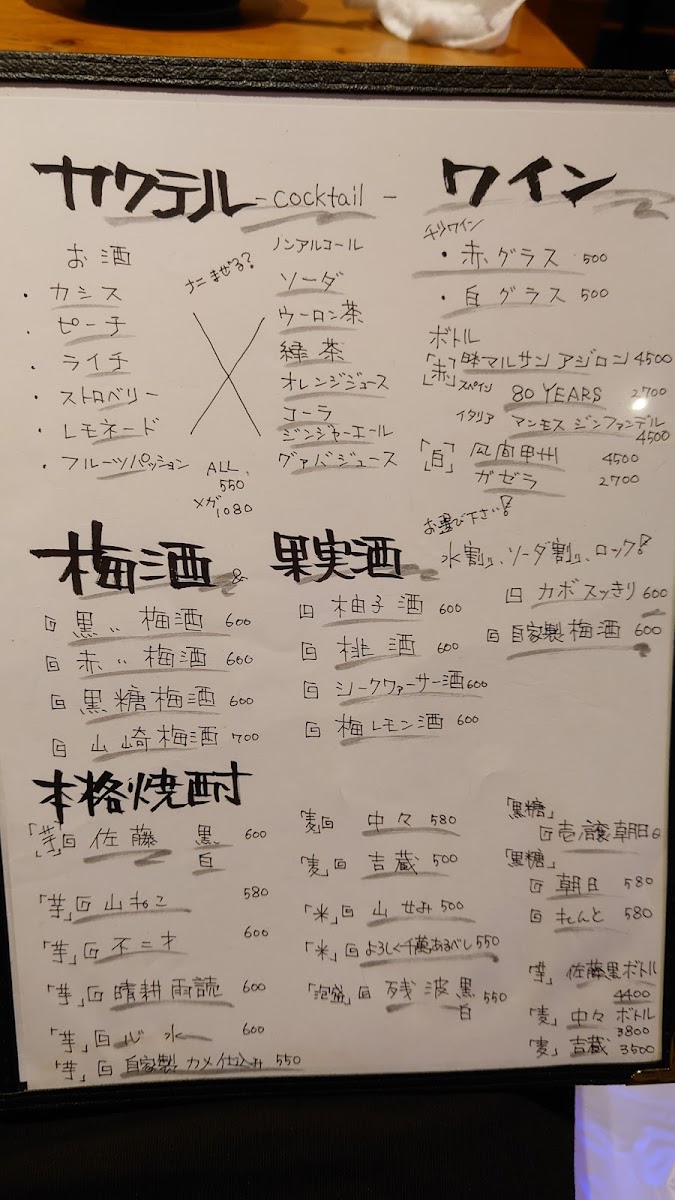 カクテル - cocktail -
お酒
・カシス
・ピーチ
・ライチ
・ストロベリー
・レモネード
・フルーツパッション
ナニまぜる?
ノンアルコール
ソーダ
ウーロン茶
緑茶
オレンジジュース
コーラ
ジンジャーエール
グァバジュース
ALL, 550
メガ 1080
ワイン
チリワイン
・赤グラス 500
・白グラス 500
ボトル
「赤」 マルサン アジロン 4500
スペイン 80 YEARS 2700
イタリア マンモス ジンファンデル 4500
「白」 風間甲州 4500
ガゼラ 2700
梅酒 & 果実酒
お選び下さい!
水割り、ソーダ割り、ロック!
黒い梅酒 600
赤い梅酒 600
黒糖梅酒 600
山崎梅酒 700
柚子酒 600
桃酒 600
シークワァーサー酒 600
梅レモン酒 600
カボスッきり 600
自家製梅酒 600
本格焼酎
「芋」 佐藤 黒 白 600
「芋」 山ねこ 580
「芋」 不二才 600
「芋」 晴耕雨読 600
「芋」 心水 600
「芋」 自家製カメ仕込み 550
「麦」 中々 580
「麦」 吉蔵 500
「米」 山せみ 500
「米」 よろしく千萬あるべし 550
「泡盛」 残波 黒 白 550
「黒糖」
壱譲朝日
「黒糖」
朝日 580
れんと 580
「芋」 佐藤黒ボトル 4400
「麦」 中々 ボトル 3800
「麦」 吉蔵 3500